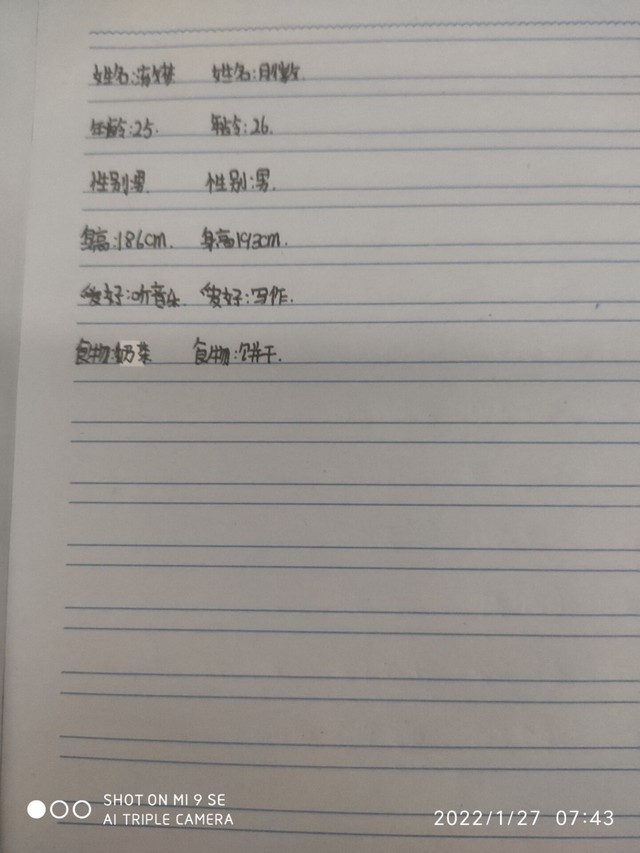 姓名: 姓名:
年龄:25. 年龄:26.
性别:男 性别:男.
身高:186cm. 身高193cm.
爱好:听音乐. 爱好:写作.
食物:奶茶 食物:饼干.
SHOT ON MI 9 SE
AI TRIPLE CAMERA
2022/1/27 07:43